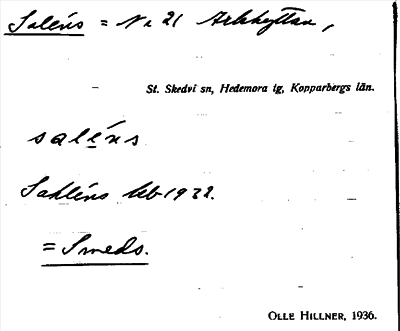 Saléns = Nr 21 Arkhyttan,
St. Skedvi sn, Hedemora tg, Kopparbergs län.
saléns
Sahléns 1932.
= Smeds.
OLLE HILLNER, 1936.